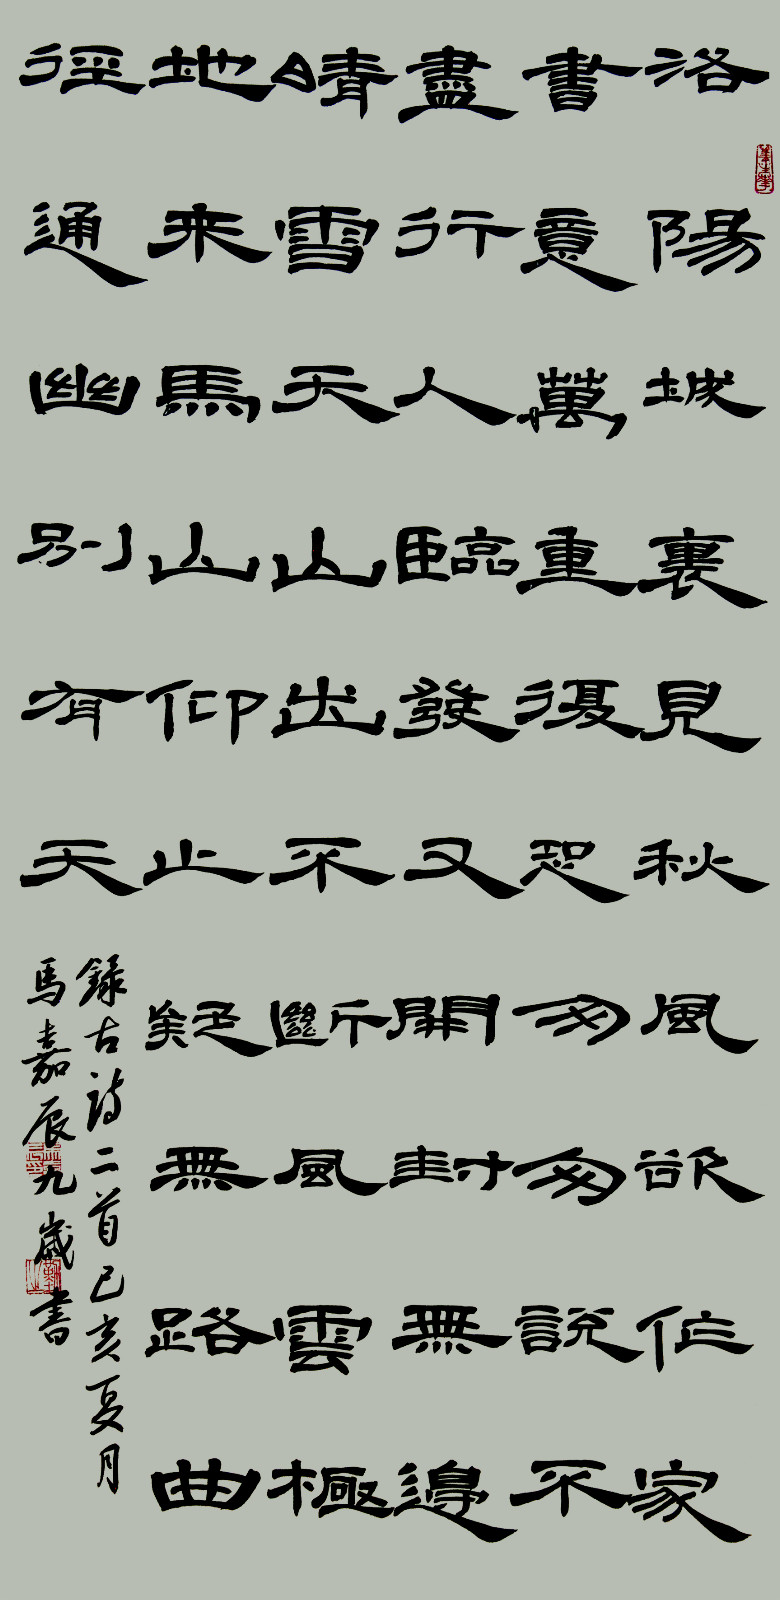 洛陽城裏見秋風欲作家
書意萬重復恐匆匆說不
盡行人臨發又開封無邊
晴雪天山出不斷風雲極
地来馬山仰止疑無路曲
徑通幽別有天
錄古詩二首己亥夏月
馬嘉辰九歲書